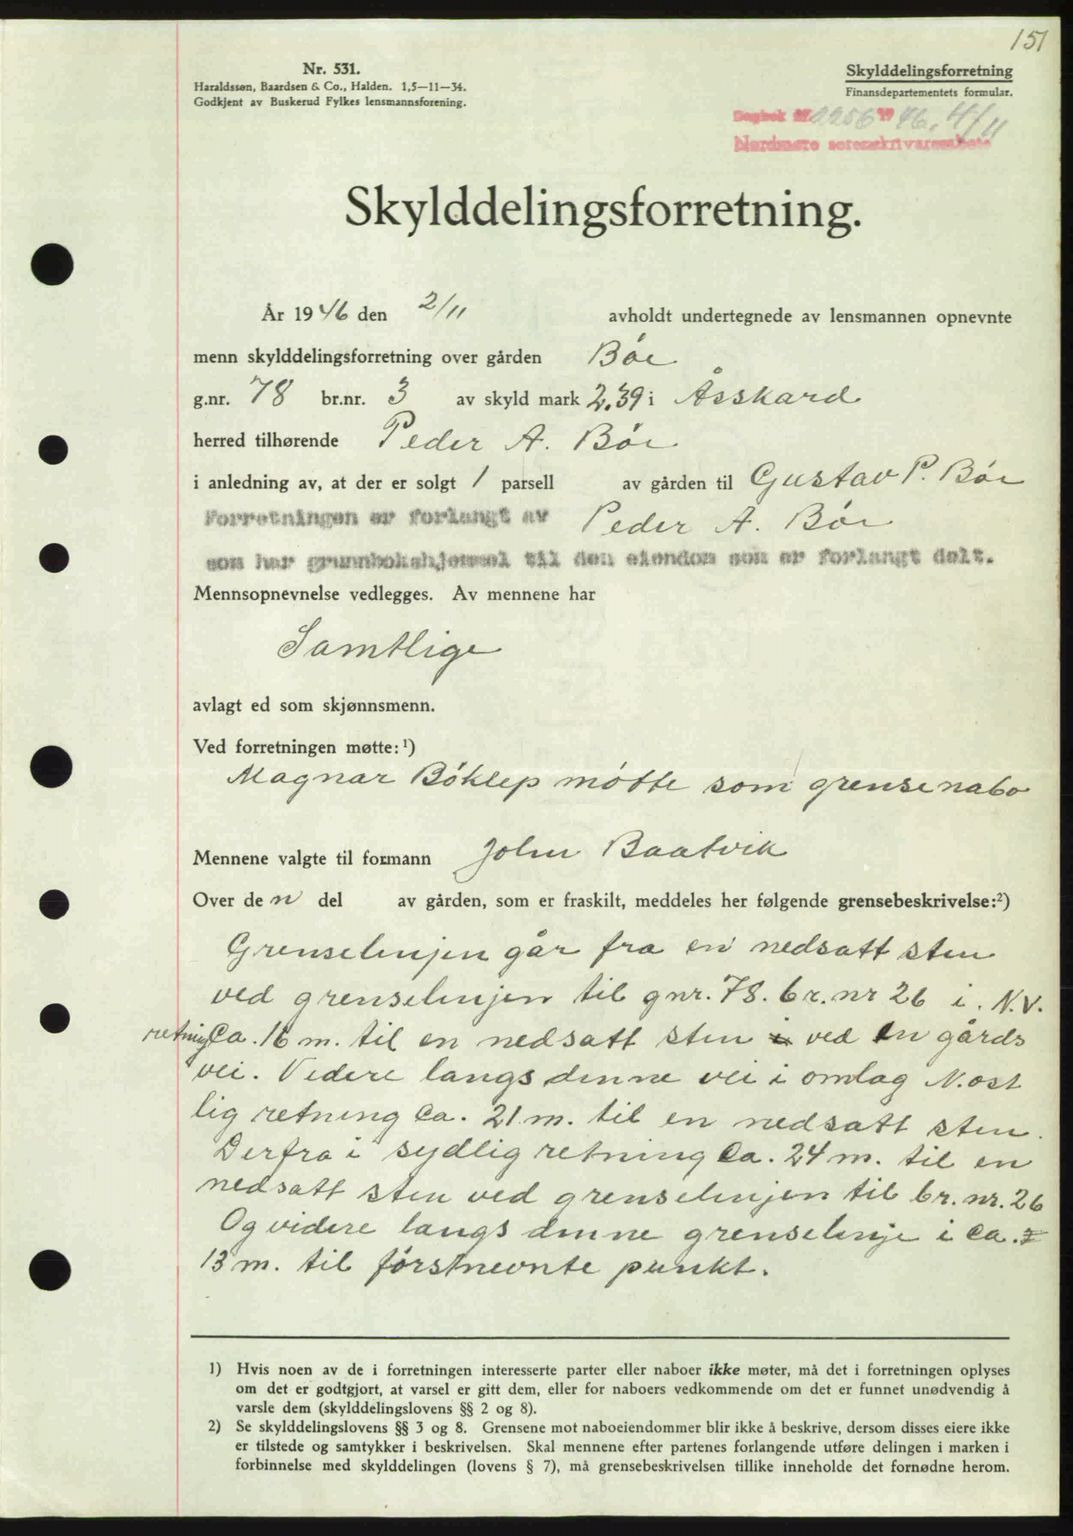 151
Nr. 531.
Haraldssøn, Baardsen & Co., Halden. 1,5—11—34.
Godkjent av Buskerud Fylkes lensmannsforening.
Skylddelingsforretning
Finansdepartementets formular.
Dagbok nr 2256 19 46, 4/11
Nordmøre sorenskrivarembete
Skylddelingsforretning.
År 1946 den 2/11 avholdt undertegnede av lensmannen opnevnte
menn skylddelingsforretning over gården Bøe
g.nr. 78 br.nr. 3 av skyld mark 2,39 i Åsskard
herred tilhørende Peder A. Bøe
i anledning av, at der er solgt 1 parsell av gården til Gustav P. Bøe
Forretningen er forlangt av Peder A. Bøe
som har grunnbokshjemmel til den eiendom som er forlangt delt.
Mennsopnevnelse vedlegges. Av mennene har
Samtlige
avlagt ed som skjønnsmenn.
Ved forretningen møtte: 1)
Magnar Bøklep møtte som grensenabo
Mennene valgte til formann John Baatvik
Over den del av gården, som er fraskilt, meddeles her følgende grensebeskrivelse:2)
Grenselinjen går fra en nedsatt sten
ved grenselinjen til gnr. 78. br. nr 26 i. N.V.
retning Ca. 16 m. til en nedsatt sten i ved en gårds
vei. Videre langs denne vei i omlag N.ost
lig retning Ca. 21 m. til en nedsatt sten.
Derfra i sydlig retning Ca. 24 m. til en
nedsatt sten ved grenselinjen til br. nr. 26
Og videre langs denne grenselinje i ca.
13 m. til førstnevnte punkt.
1) Hvis noen av de i forretningen interesserte parter eller naboer ikke møter, må det i forretningen oplyses
om det er godtgjort, at varsel er gitt dem, eller for naboers vedkommende om det er funnet unødvendig å
varsle dem (skylddelingslovens §§ 2 og 8).
2) Se skylddelingslovens §§ 3 og 8. Grensene mot naboeiendommer blir ikke å beskrive, dersom disses eiere ikke
er tilstede og samtykker i beskrivelsen. Skal mennene efter partenes forlangende utføre delingen i marken i
forbinnelse med skylddelingen (lovens § 7), må grensebeskrivelsen tillike inneholde det fornødne herom.